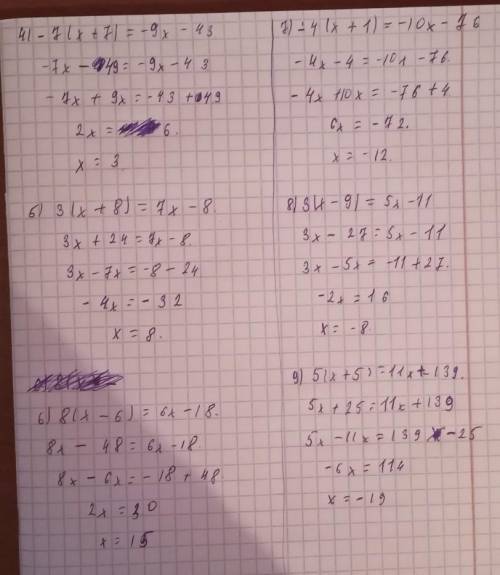 4) -7(x+7)=-9x-43
-7x-49=-9x-43
-7x+9x=-43+49
2x=6.
x=3
б) 3(x+8)=7x-8.
3x+24=7x-8.
3x-7x=-8-24
-4x=-32
x=8.
6) 8(x-6)=6x-18.
8x-48=6x-18.
8x-6x=-18+48.
2x=30
x=15
7) -4(x+1)=-10x-76
-4x-4=-10x-76.
-4x+10x=-76+4
6x=-72.
x=-12.
8) 3(x-9)=5x-11
3x-27=5x-11
3x-5x=-11+27.
-2x=16
x=-8.
9) 5(x+5)=11x+139.
5x+25=11x+139
5x-11x=139-25
-6x=114
x=-19